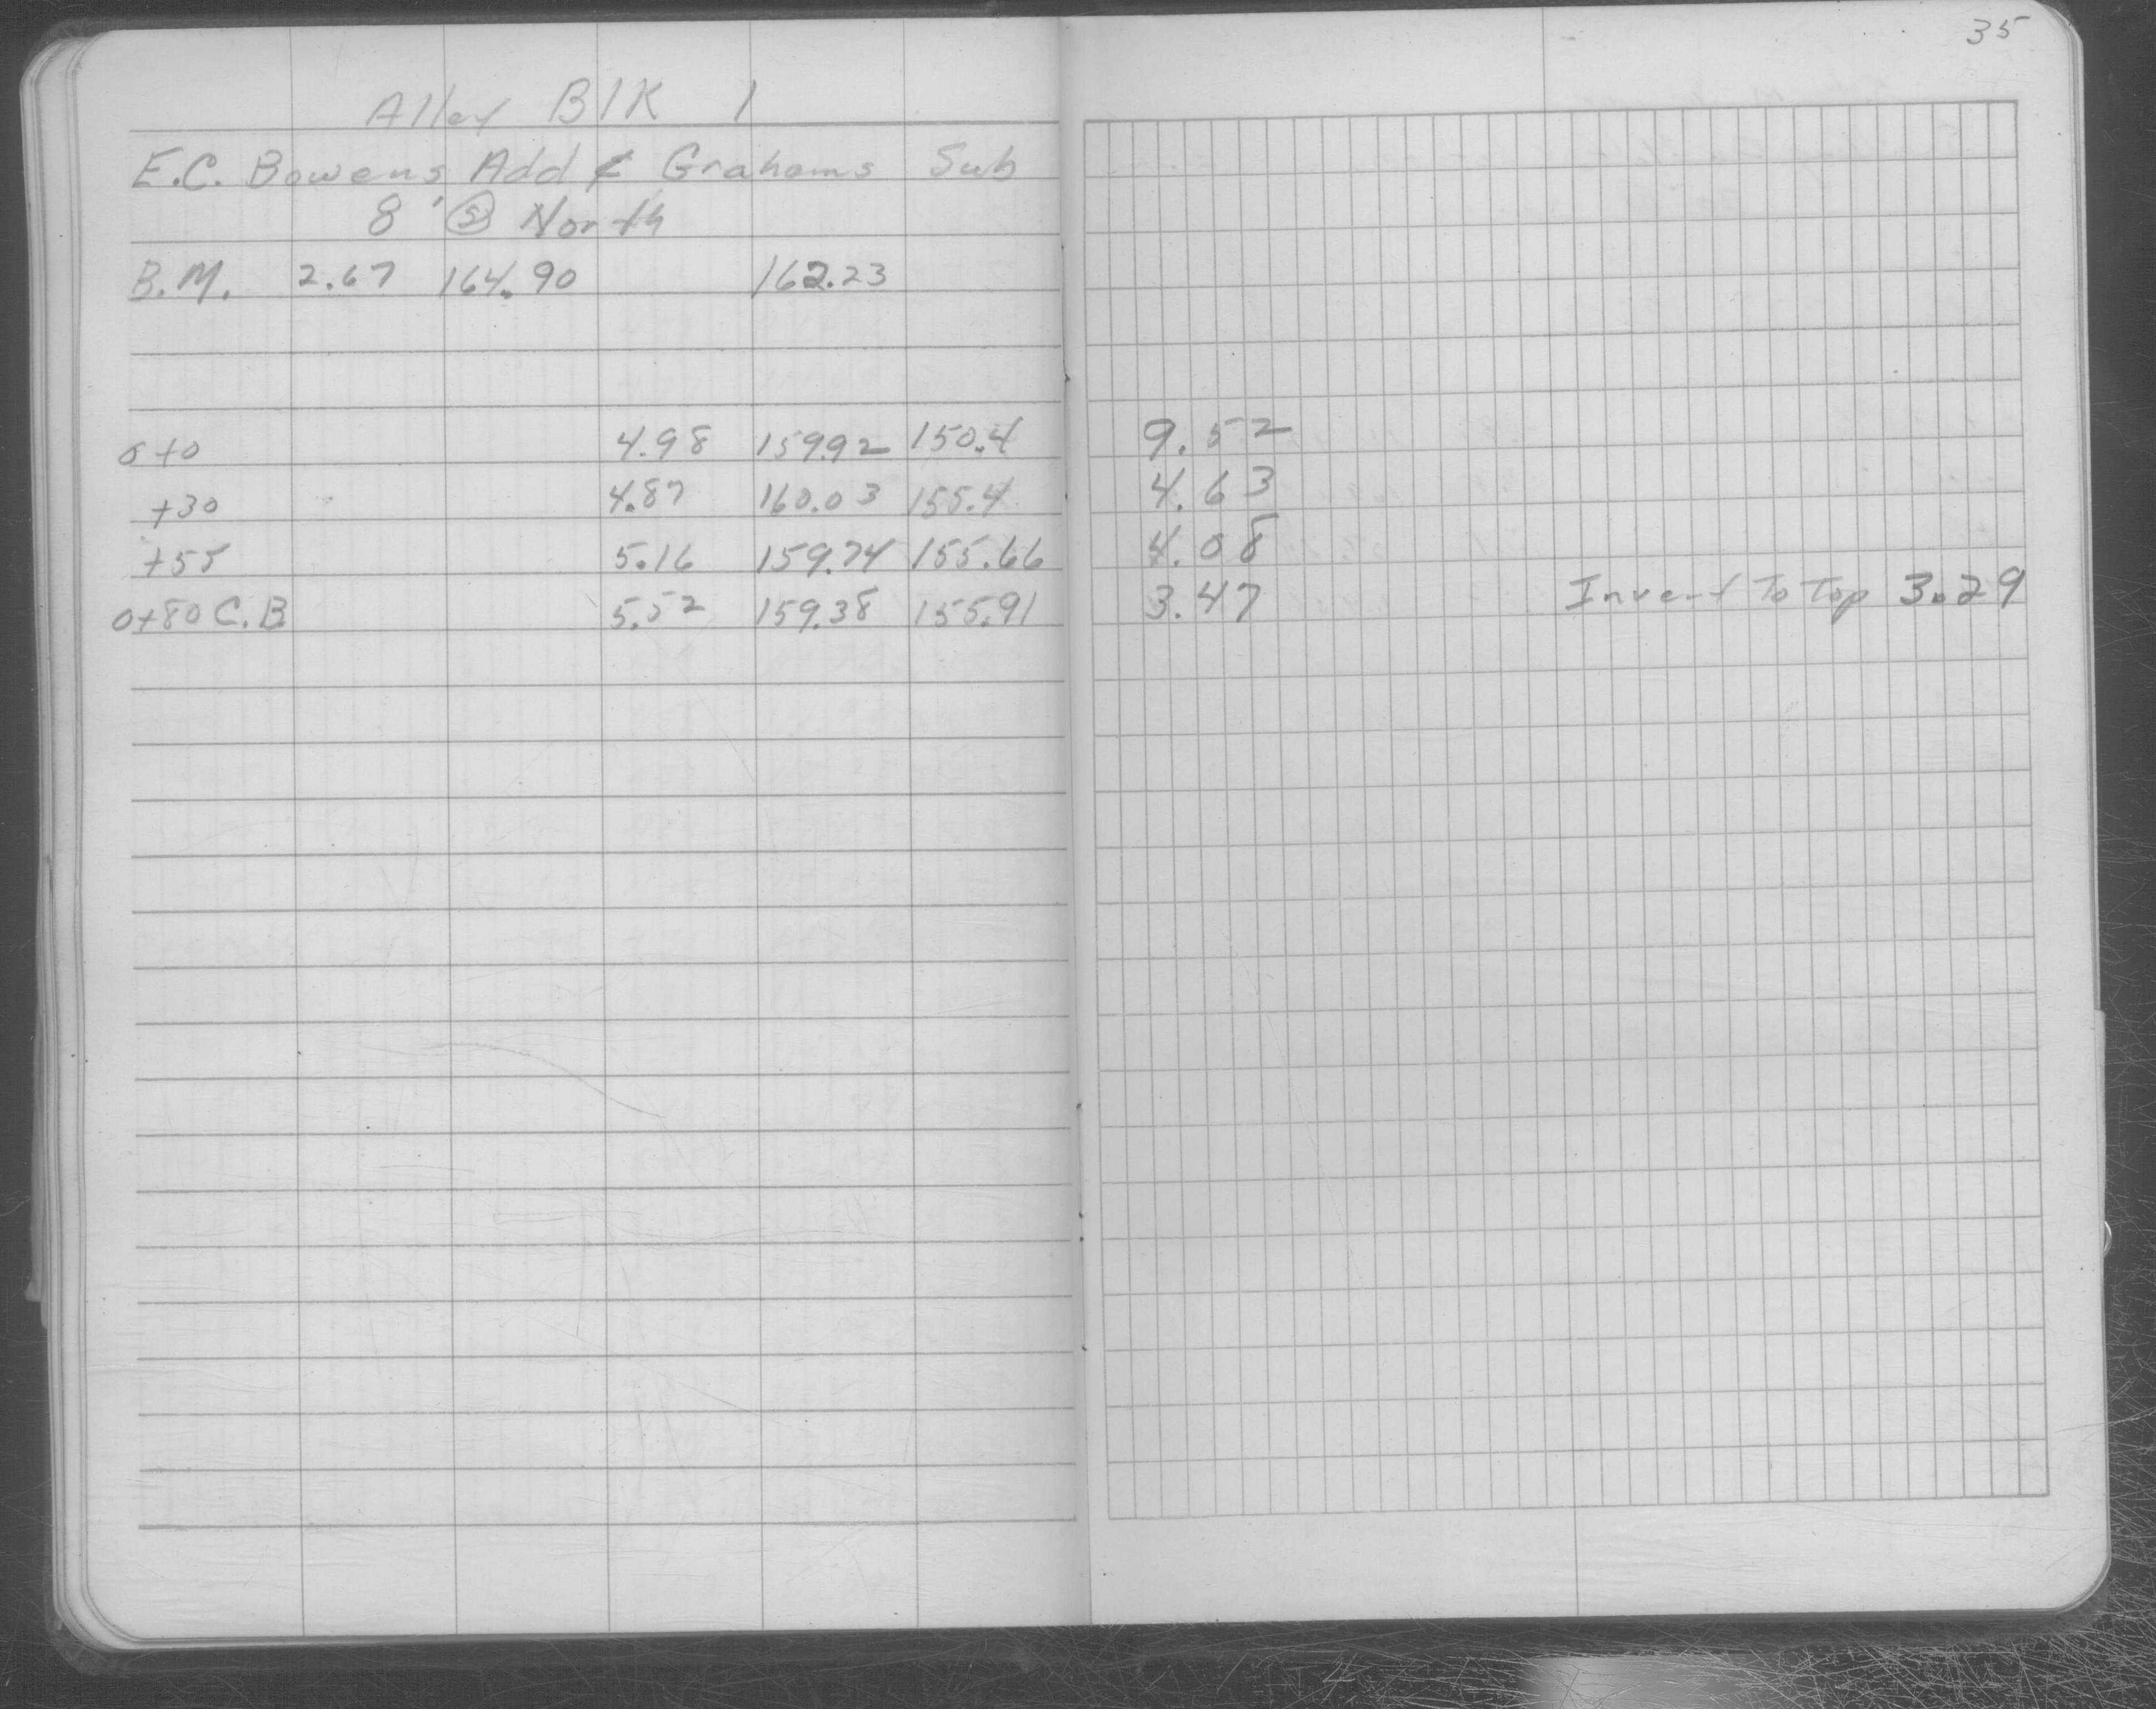 35
Alley BlK 1
E.C. Bowens Add & Grahams Sub
8' Ⓢ North
B.M. 2.67 164.90 162.23
0+0 4.98 159.92 150.4 9.52
+30 4.87 160.03 155.4 4.63
+55 5.16 159.74 155.66 4.08
0+80 C.B. 5.52 159.38 155.91 3.47 Invert To Top 3.29